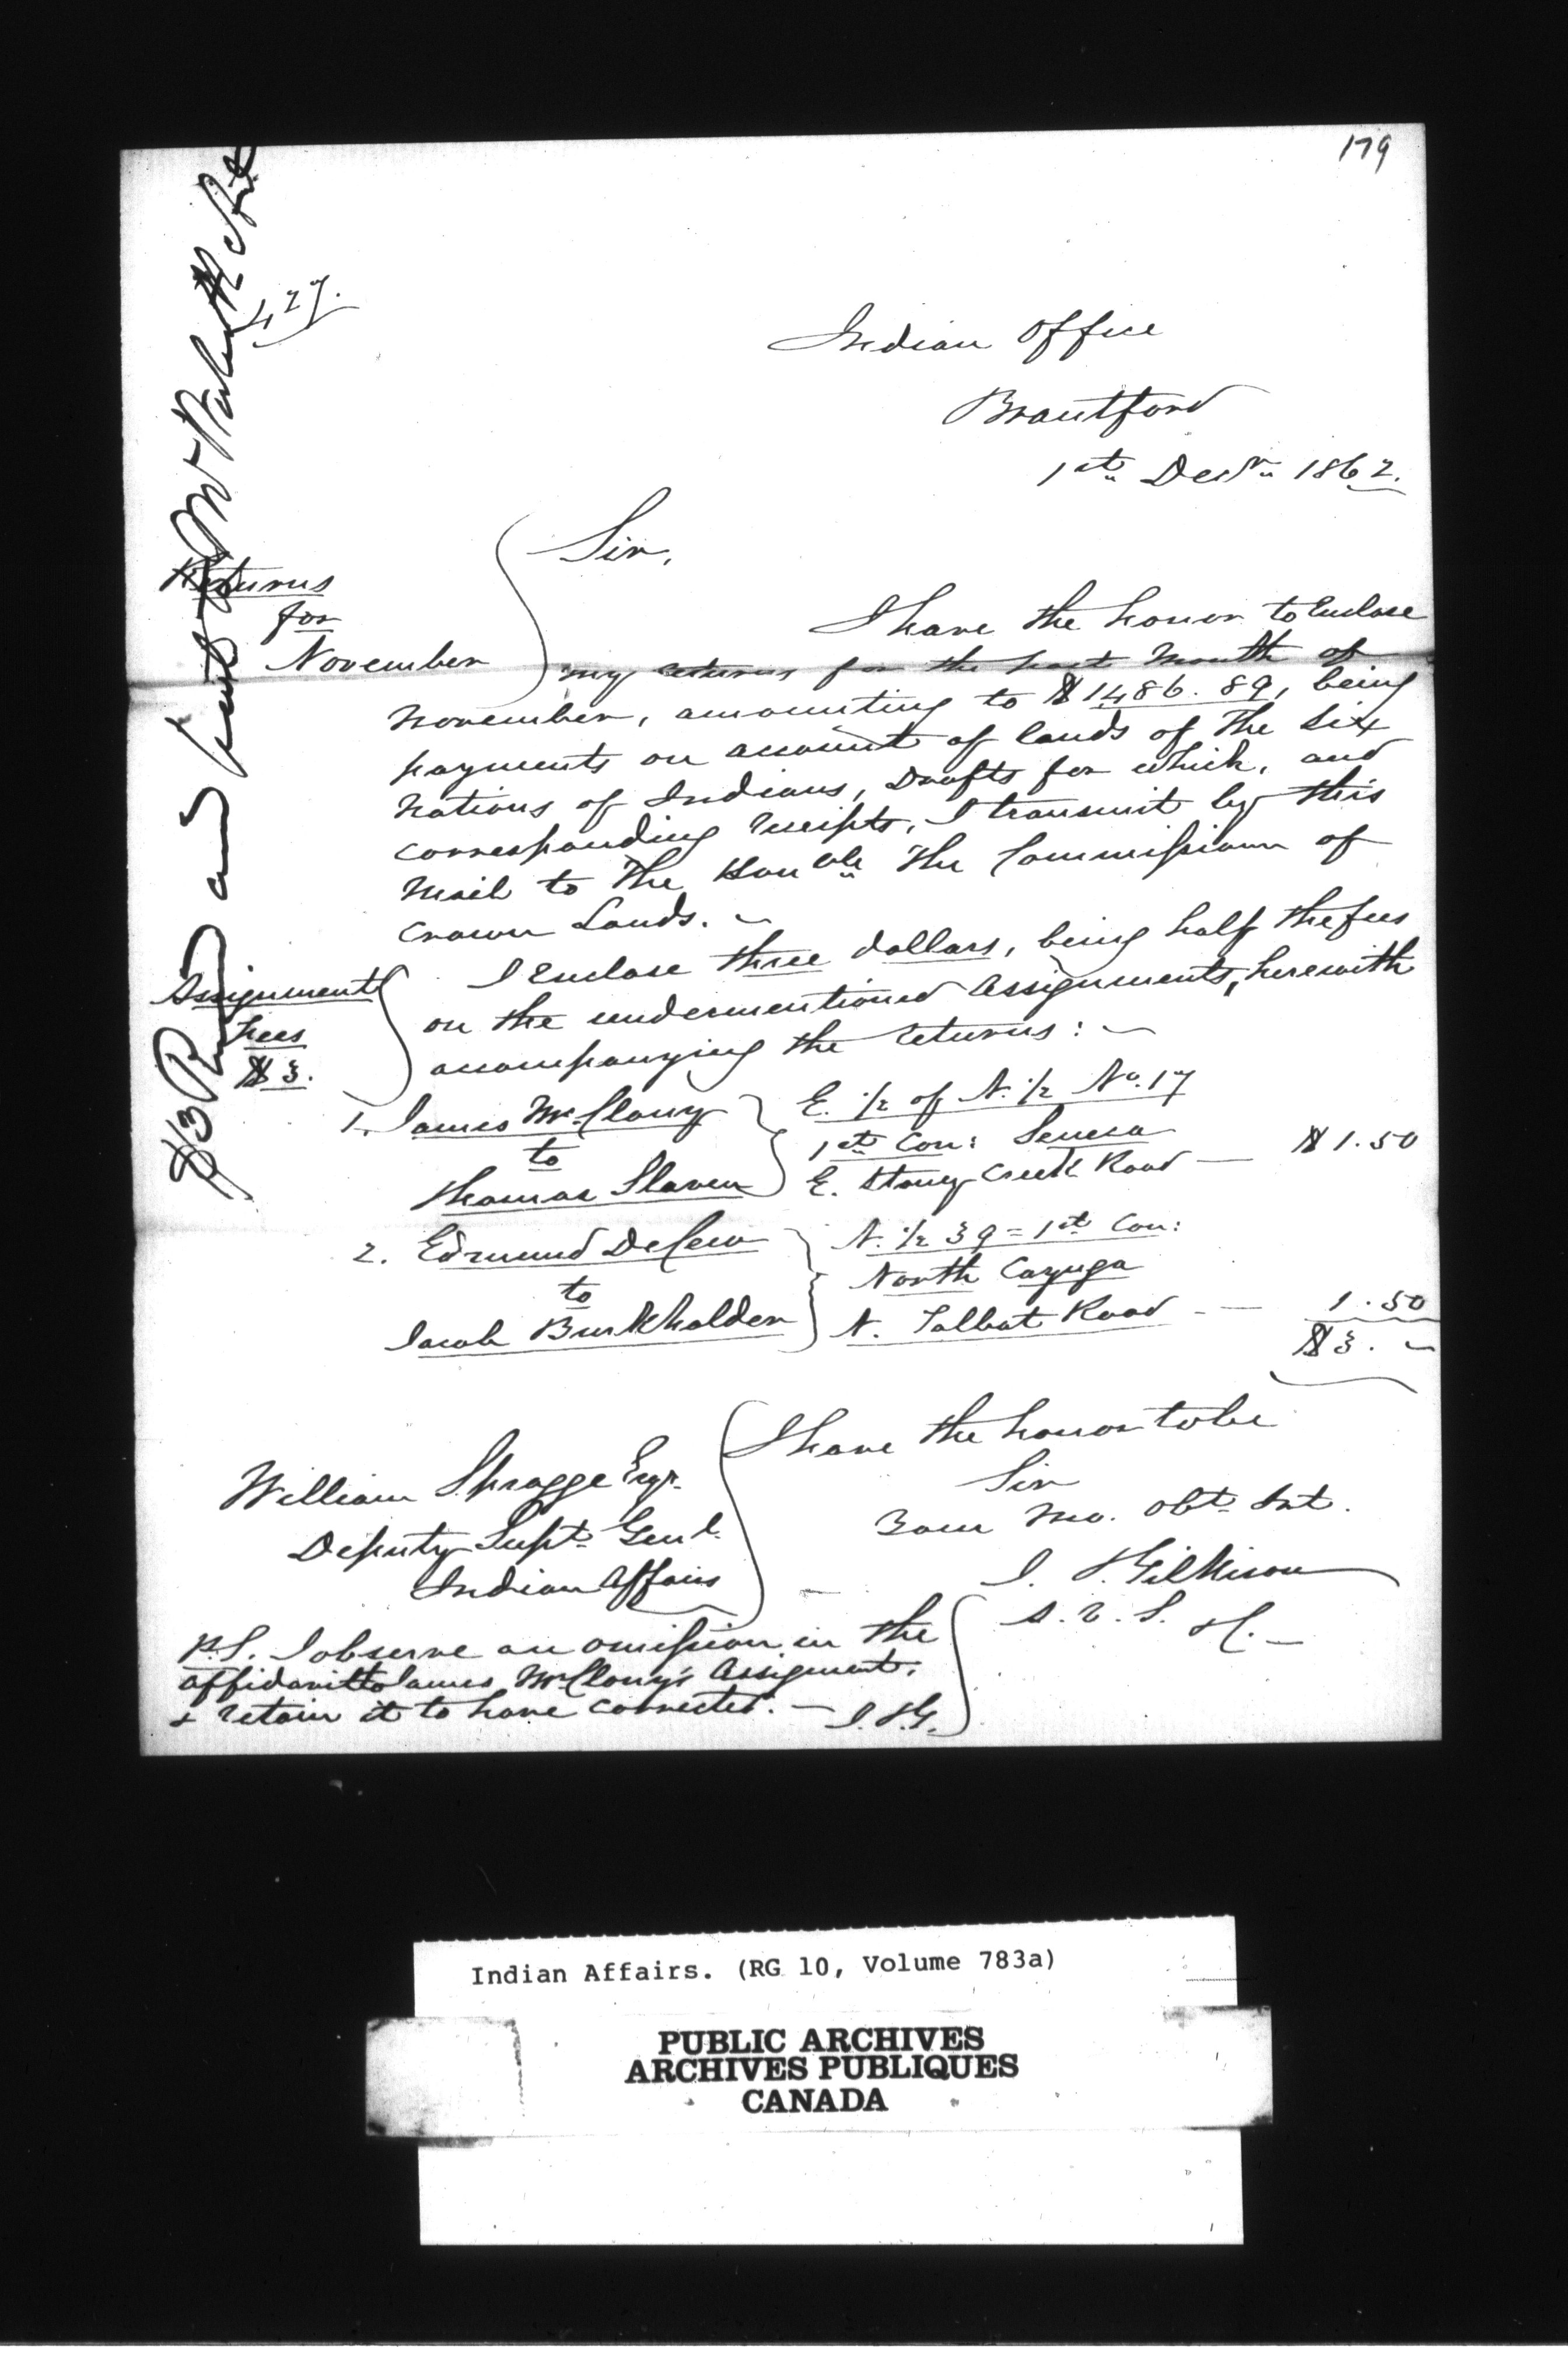 179
427.
Indian Office
Brantford
1st Decr 1862.
Sir,
Returns
for
November
I have the honor to Enclose
my returns for the past Month of
November, amounting to $1486.89, being
payments on account of lands of the Six
Nations of Indians, Drafts for which, and
corresponding receipts, I transmit by this
Mail to The Honble The Commissioner of
Crown Lands. –
Assignment
fees
$3.
I Enclose three dollars, being half the fees
on the undermentioned Assignments, herewith
accompanying the returns: –
1. James McClony
to
Thomas Slaven
E. 1/2 of N. 1/2 No. 17
1st Con: Seneca
E. Stoney Creek Road — $1.50
2. Edmund DeCew
to
Jacob Burkholder
N. 1/2 39 = 1st Con:
North Cayuga
N. Talbot Road — 1.50
$3. –
I have the honor to be
Sir
Your Mo. Obt. Svt.
J. T. Gilkison
William Spragge Esqr.
Deputy Supt. Genl.
Indian Affairs
P.S. I observe an omission in the
affidavit to James McClony's Assigment,
& retain it to have corrected. – J.T.G.
$3 Recd and sent to Mr
Indian Affairs. (RG 10, Volume 783a)
PUBLIC ARCHIVES
ARCHIVES PUBLIQUES
CANADA